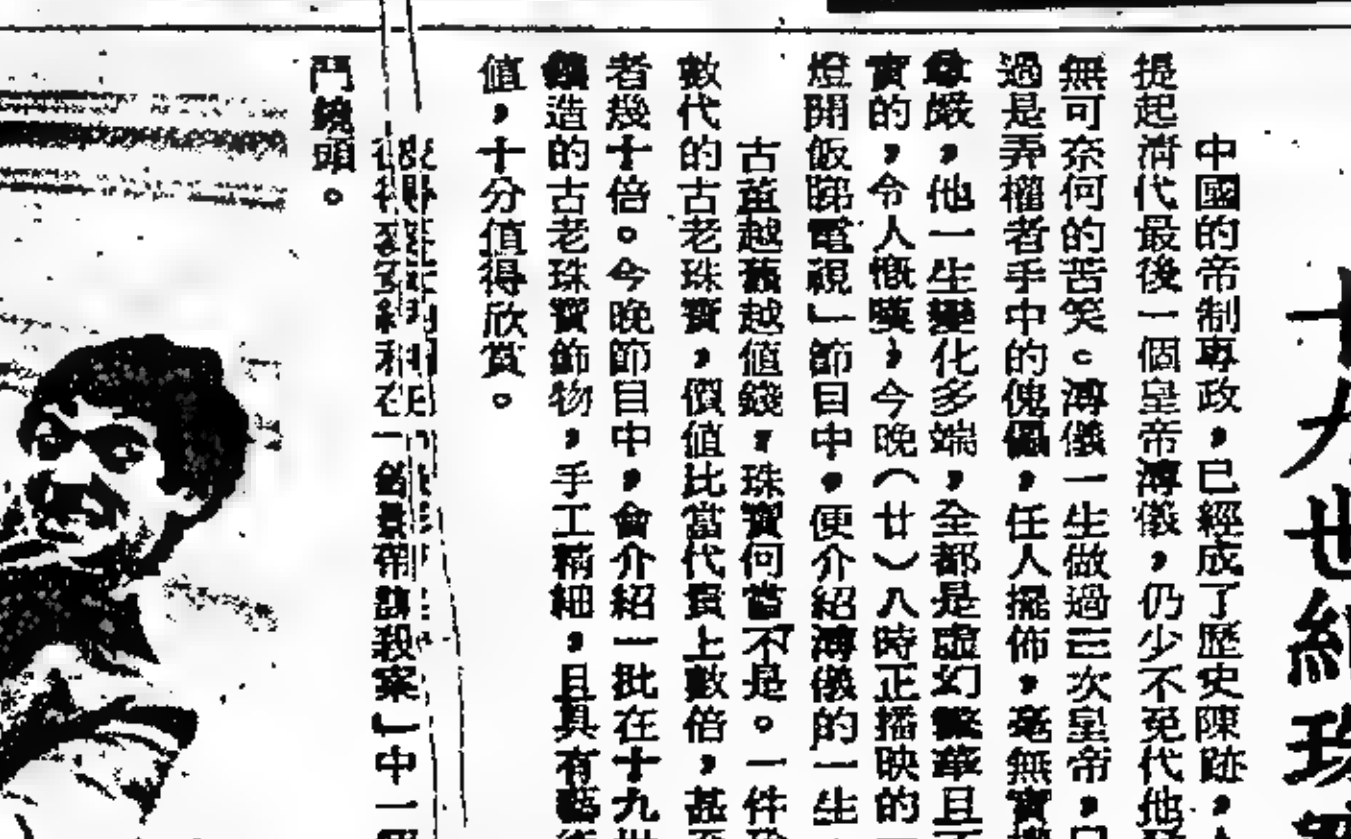 十九世紀珠
中國的帝制專政，已經成了歷史陳跡，人
提起淸代最後一個皇帝溥儀，仍少不免代他
無可奈何的苦笑。溥儀一生做過三次皇帝，只
過是弄權者手中的傀儡，任人擺佈，毫無實權
嚴，他一生變化多端，全都是虛幻繁華且不
實的，令人慨嘆，今晚（廿）八時正播映的「
燈開飯睇電視」節目中，便介紹溥儀的一生
古董越舊越值錢，珠寶何嘗不是。一件
數代的古老珠寶，價值比當代貴上數倍，甚至
者幾十倍。今晚節目中，會介紹一批在十九世
鑲造的古老珠寶飾物，手工精細，且具有藝術
值，十分值得欣賞。
謀殺案」中一
鬥鏡頭。